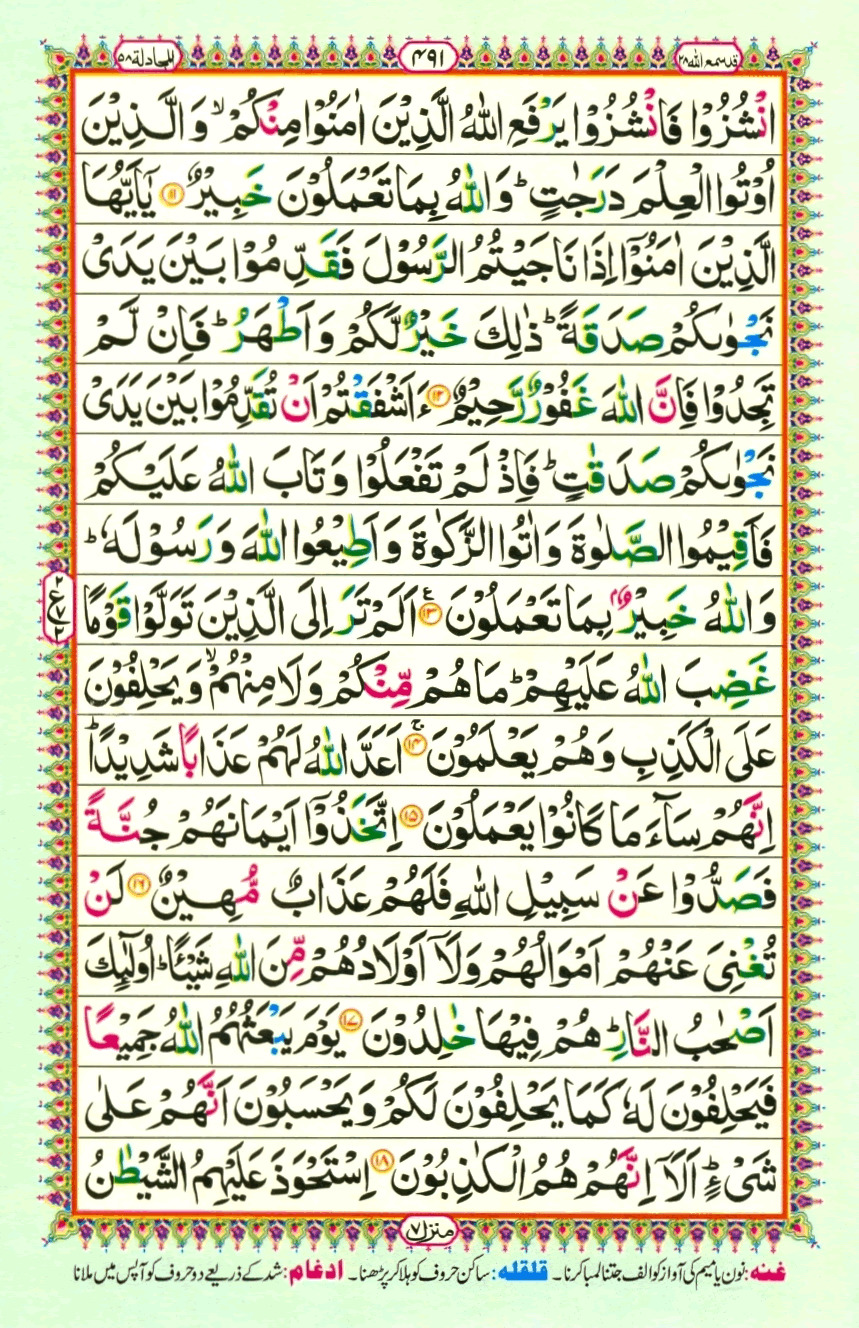 قدسمع الله ٢٨
٤٩١
المجادلة ٥٨
انْشُزُوْا فَانْشُزُوْا يَرْفَعِ اللّٰهُ الَّذِيْنَ اٰمَنُوْا مِنْكُمْ ۙ وَالَّذِيْنَ
اُوْتُوا الْعِلْمَ دَرَجٰتٍ ؕ وَاللّٰهُ بِمَا تَعْمَلُوْنَ خَبِيْرٌ ۝۱۱ يٰۤاَيُّهَا
الَّذِيْنَ اٰمَنُوْۤا اِذَا نَاجَيْتُمُ الرَّسُوْلَ فَقَدِّمُوْا بَيْنَ يَدَىْ
نَجْوٰىكُمْ صَدَقَةً ؕ ذٰلِكَ خَيْرٌ لَّكُمْ وَاَطْهَرُ ؕ فَاِنْ لَّمْ
تَجِدُوْا فَاِنَّ اللّٰهَ غَفُوْرٌ رَّحِيْمٌ ۝۱۲ ءَاَشْفَقْتُمْ اَنْ تُقَدِّمُوْا بَيْنَ يَدَىْ
نَجْوٰىكُمْ صَدَقٰتٍ ؕ فَاِذْ لَمْ تَفْعَلُوْا وَتَابَ اللّٰهُ عَلَيْكُمْ
فَاَقِيْمُوا الصَّلٰوةَ وَاٰتُوا الزَّكٰوةَ وَاَطِيْعُوا اللّٰهَ وَرَسُوْلَهٗ ؕ
وَاللّٰهُ خَبِيْرٌۢ بِمَا تَعْمَلُوْنَ ۝۱۳ ع اَلَمْ تَرَ اِلَى الَّذِيْنَ تَوَلَّوْا قَوْمًا
۲ ع ۷ ۲
غَضِبَ اللّٰهُ عَلَيْهِمْ ؕ مَا هُمْ مِّنْكُمْ وَلَا مِنْهُمْ ۙ وَيَحْلِفُوْنَ
عَلَى الْكَذِبِ وَهُمْ يَعْلَمُوْنَ ۝۱۴ ج اَعَدَّ اللّٰهُ لَهُمْ عَذَابًا شَدِيْدًا ؕ
اِنَّهُمْ سَآءَ مَا كَانُوْا يَعْمَلُوْنَ ۝۱۵ اِتَّخَذُوْۤا اَيْمَانَهُمْ جُنَّةً
فَصَدُّوْا عَنْ سَبِيْلِ اللّٰهِ فَلَهُمْ عَذَابٌ مُّهِيْنٌ ۝۱۶ لَنْ
تُغْنِىَ عَنْهُمْ اَمْوَالُهُمْ وَلَاۤ اَوْلَادُهُمْ مِّنَ اللّٰهِ شَيْـًٔا ؕ اُولٰٓئِكَ
اَصْحٰبُ النَّارِ ؕ هُمْ فِيْهَا خٰلِدُوْنَ ۝۱۷ يَوْمَ يَبْعَثُهُمُ اللّٰهُ جَمِيْعًا
فَيَحْلِفُوْنَ لَهٗ كَمَا يَحْلِفُوْنَ لَكُمْ وَيَحْسَبُوْنَ اَنَّهُمْ عَلٰى
شَىْءٍ ؕ اَلَاۤ اِنَّهُمْ هُمُ الْكٰذِبُوْنَ ۝۱۸ اِسْتَحْوَذَ عَلَيْهِمُ الشَّيْطٰنُ
منزل ۷
غنه: نون یا میم کی آواز کو الف جتنا لمبا کرنا۔ قلقله: ساکن حروف کو ہلا کر پڑھنا۔ ادغام: شد کے ذریعے دو حروف کو آپس میں ملانا